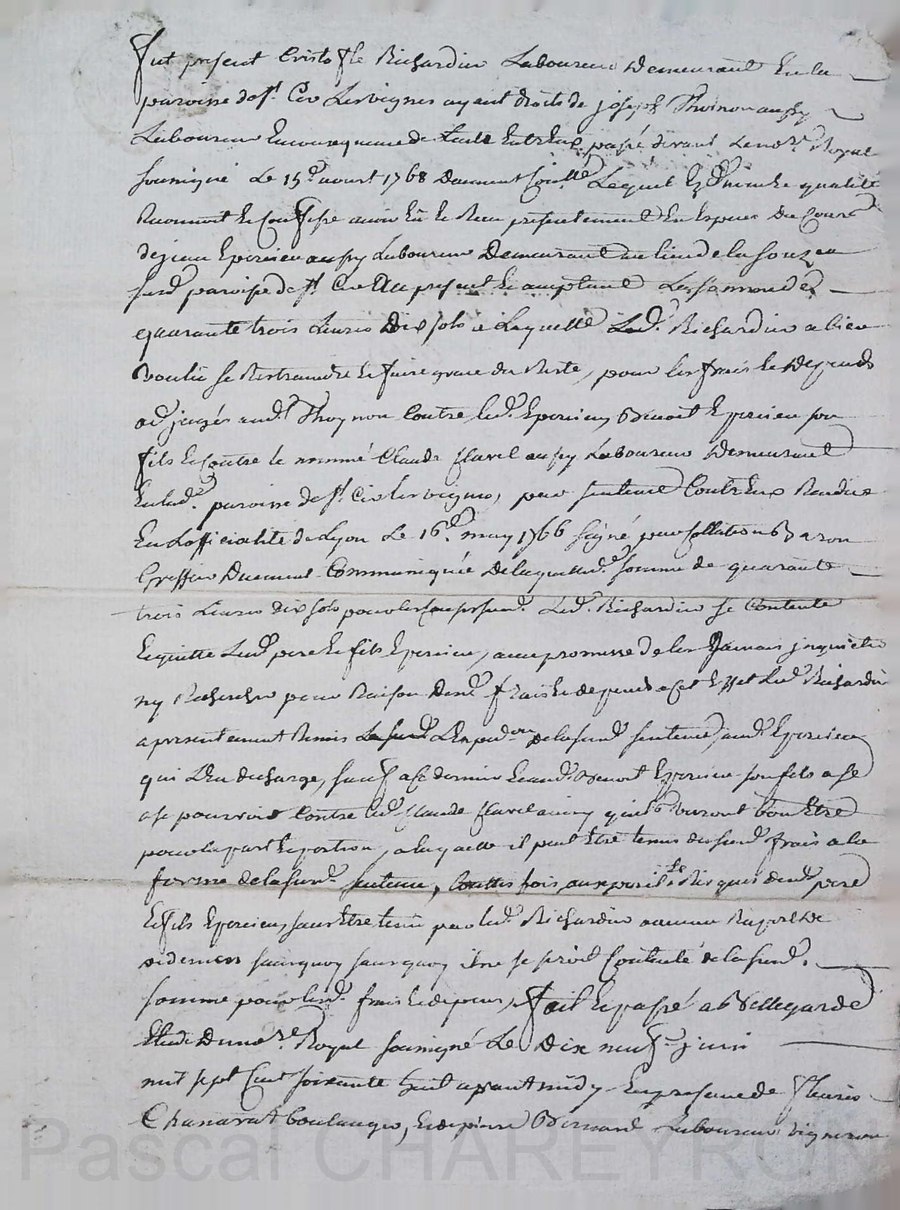 fut present Cristofle Richardin Laboureur Demeurant En la
paroisse de st. Cir Les vignes ayant droits de joseph Thoinon aussy
Laboureur En consequence de traité Entr'eux passé devant Le no.re Royal
soussigné Le 15e. aoust 1768 Duement Con.llé Lequel Esd. qualité
Reconnoit Et Confesse avoir Eu Et Reçu présentement En Especes Du Cours
de jean Epercieu aussy Laboureur Demeurant au lieu de la
surd. paroisse de st. Cir Cy présent Et acceptant La somme de
quarante trois Livres Dix sols a Laquelle Led. Richardin a bien
voulu se Restraindre Et faire grace du Reste, pour les frais Et Depends
adjugés aud. Thoynon Contre led. Epercieu Benoit Epercieu son
fils Et Contre le nommé Claude Clavel aussy Laboureur Demeurant
En lad. paroisse de st. Cir les vignes, par sentence Contr'Eux Rendue
En L'officialité de Lyon Le 16e. may 1766 signé pour Collation Baron
Greffier Duement Communiquée De laquelle d. somme de quarante
trois Livres dix sols pour les causes surd. Led. Richardin se Contente
Et quitte Lesd. pere Et fils Epercieu, avec promesse de les Jamais inquieter
ny Rechercher pour Raison Desd. frais Et depends a Cet Effet Led. Richardin
a presentement Remis L'Expedon De la surd. sentence, aud. Epercieu
qui L'En decharge, sauf a Ce dernier Et aud. Benoit Epercieu son fils a se
a se pourvoir Contre led. Claude Clavel ainsy qu'ils verront bon Etre
pour la part Et portion, a laquelle il peut Etre tenus des surd. frais a la
forme de la surd. sentence, touttes fois aux perils Et Risques desd. pere
Et fils Epercieu, sans Etre tenu par led. Richardin aucune
sans quoy sans quoy il ne se seroit Contenté de la surd.
somme pour lesd. frais Et depens, fait Et passé a Bellegarde
Etude Du no.re Royal soussigné Le Dix neuf juin
mil sept Cent soixante huit avant midy En presence de fleury
Chanavat boulanger, Et de pierre Bernard Laboureur vigneron
Pascal CHAREYRON